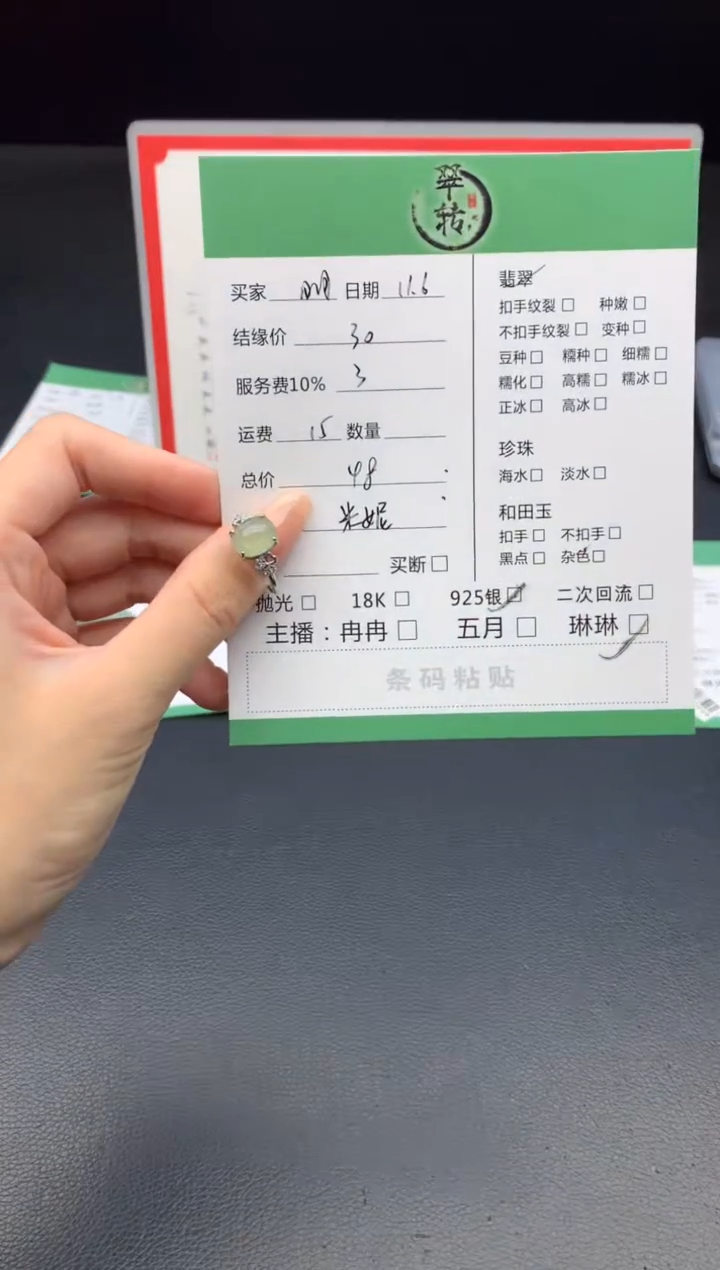 翠转
买家 明 日期 11.6
结缘价 30
服务费10% 3
运费 15 数量
总价 48
米妮
买断
翡翠
扣手纹裂 种嫩
不扣手纹裂 变种
豆种 糯种 细糯
糯化 高糯 糯冰
正冰 高冰
珍珠
海水 淡水
和田玉
扣手 不扣手
黑点 杂色
抛光 18K 925银 二次回流
主播：冉冉 五月 琳琳
条码粘贴